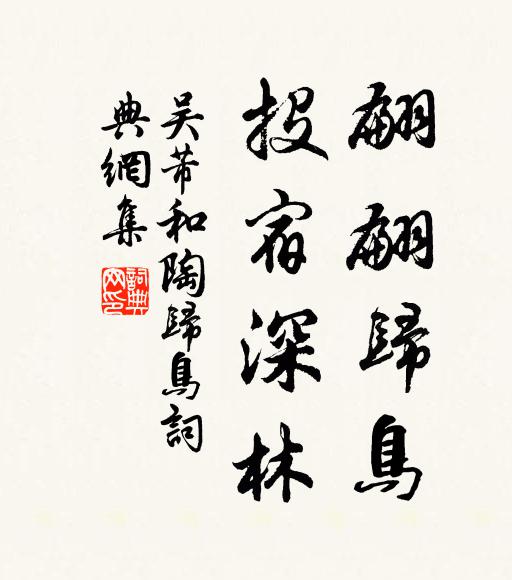 翩翩歸鳥
投宿深林
吴芾和陶歸鳥詞
典網集
詞典
网印